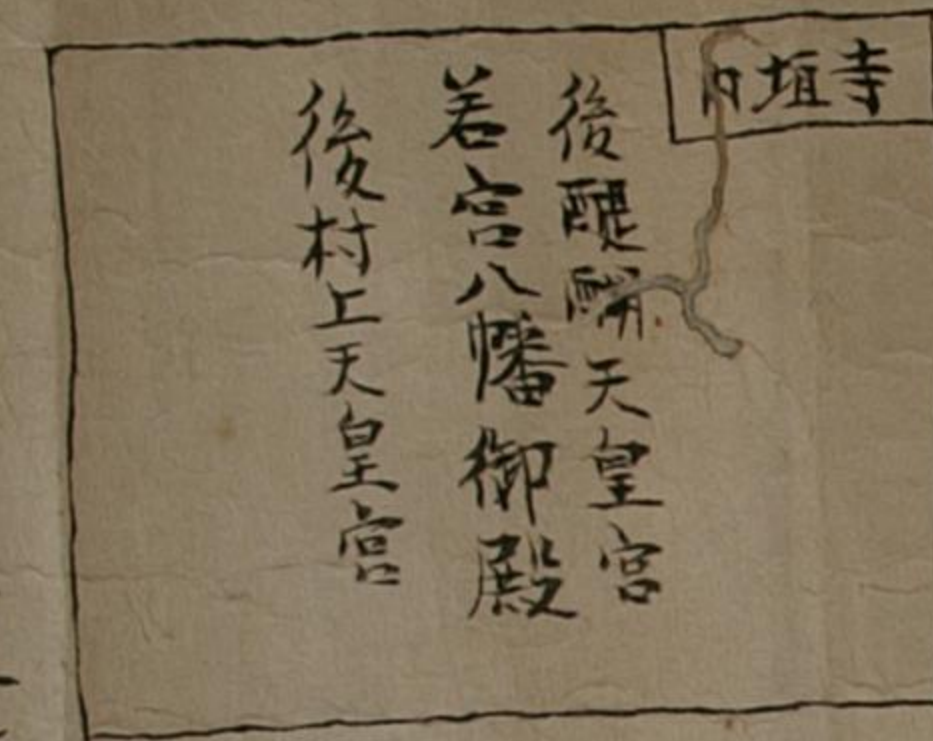 寺垣内
後醍醐天皇宮
若宮八幡御殿
後村上天皇宮